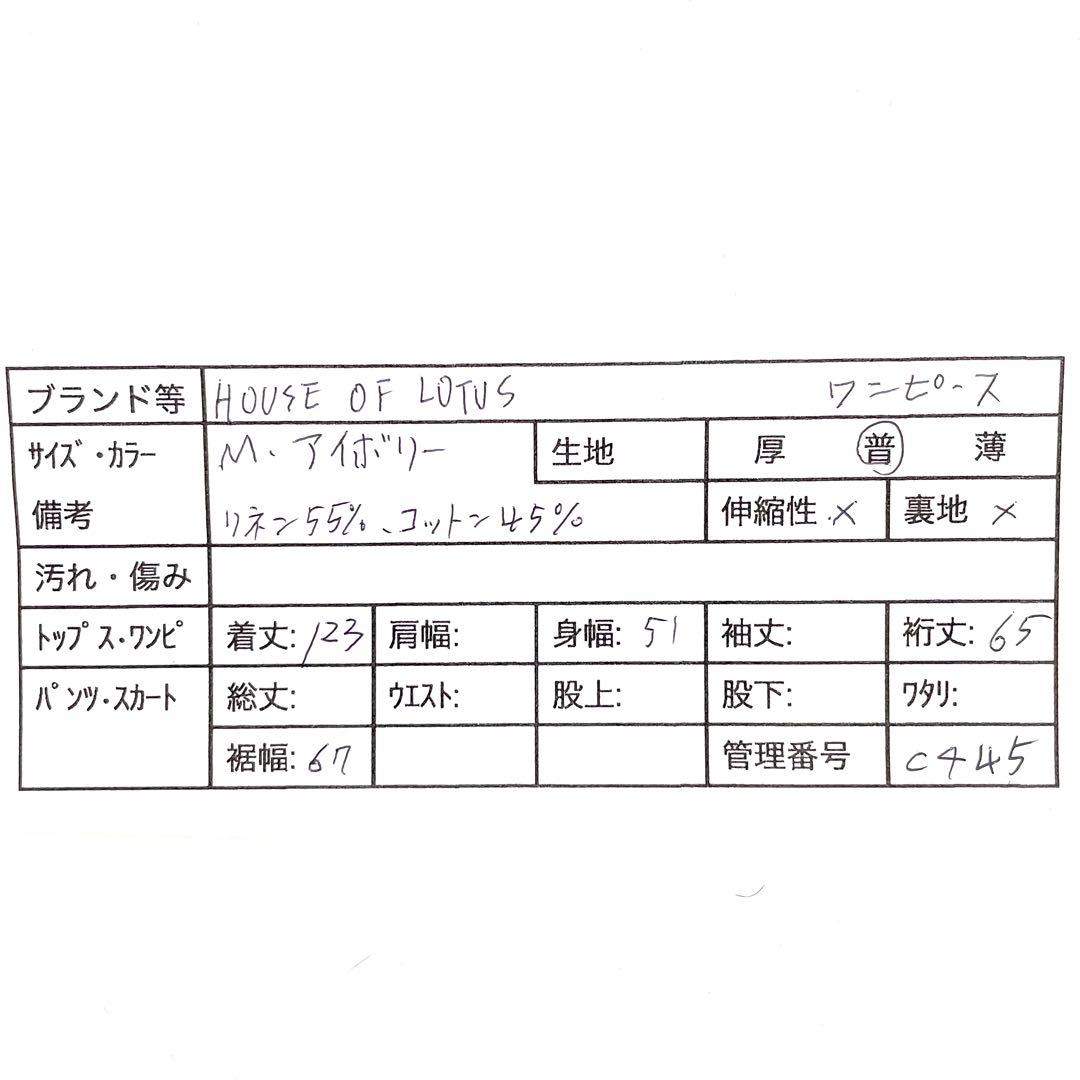 ブランド等 HOUSE OF LOTUS ワンピース
サイズ・カラー M. アイボリー 生地 厚 普 薄
備考 リネン55%、コットン45% 伸縮性 × 裏地 ×
汚れ・傷み
トップス・ワンピ 着丈: 123 肩幅: 身幅: 51 袖丈: 裄丈: 65
パンツ・スカート 総丈: ウエスト: 股上: 股下: ワタリ:
裾幅: 67 管理番号 C445